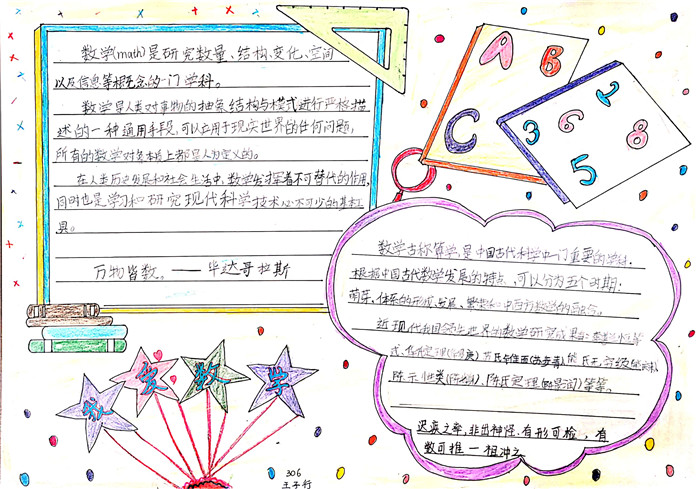 数学(math)是研究数量、结构、变化、空间
以及信息等概念的一门学科。
数学是人类对事物的抽象结构与模式进行严格描
述的一种通用手段,可以应用于现实世界的任何问题,
所有的数学对象本质上都是人为定义的。
在人类历史发展和社会生活中,数学发挥着不可替代的作用,
同时也是学习和研究现代科学技术必不可少的基本工
具。
万物皆数。——毕达哥拉斯
A B
C
3 6 1
5 8
数学古称算学,是中国古代科学中一门重要的学科,
根据中国古代数学发展的特点,可以分为五个时期:
萌芽、体系的形成、发展、繁荣和中西方数学的融合。
近现代我国领先世界的数学研究成果
陈氏定理
等等。
迟疾之率,非出神怪,有形可检,有
数可推 — 祖冲之
我爱数学
306
王子行